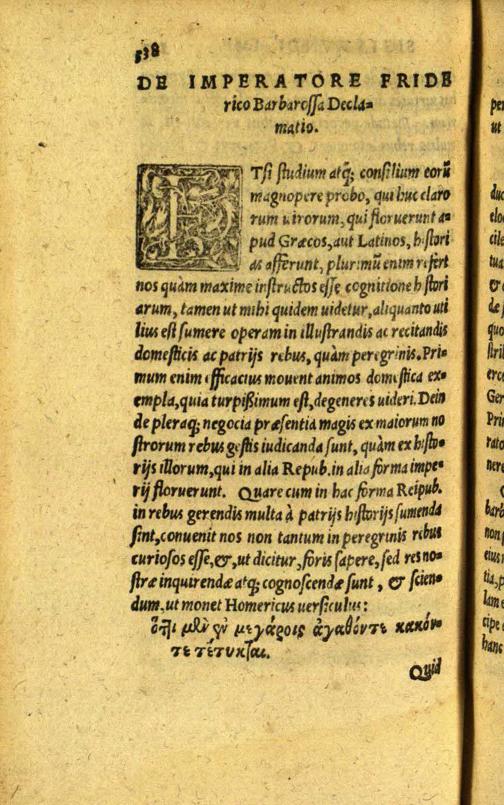 538
DE IMPERATORE FRIDE
rico Barbarossa Decla=
matio.
ETsi studium atq; consilium eorũ
magnopere probo, qui huc claro
rum uirorum, qui floruerunt a=
pud Græcos, aut Latinos, histori
as afferunt, plurimũ enim refert
nos quàm maxime instructos esse cognitione histori
arum, tamen ut mihi quidem uidetur, aliquanto uti
lius est sumere operam in illustrandis ac recitandis
domesticis ac patrijs rebus, quàm peregrinis. Pri=
mum enim efficacius mouent animos domestica ex=
empla, quia turpißimum est, degeneres uideri. Dein
de pleraq; negocia præsentia magis ex maiorum no
strorum rebus gestis iudicanda sunt, quàm ex histo=
rijs illorum, qui in alia Repub. in alia forma impe=
rij floruerunt. Quare cum in hac forma Reipub.
in rebus gerendis multa à patrijs historijs sumenda
sint, conuenit nos non tantum in peregrinis rebus
curiosos esse, &, ut dicitur, foris sapere, sed res no=
stræ inquirendæ atq; cognoscendæ sunt, & scien=
dum, ut monet Homericus uersiculus:
ὅτϊι μὲν ἐν μεγάροις ἀγαθόντε κακόν=
τε τέτυκται.
Quid